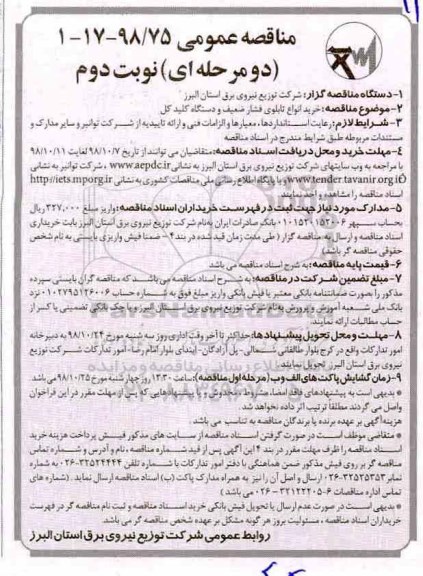 مناقصه عمومی ۹۸/۷۵-۱۷-۱
(دو مرحله ای) نوبت دوم
۱- دستگاه مناقصه گزار: شرکت توزیع نیروی برق استان البرز
۲- موضوع مناقصه: خرید انواع تابلوی فشار ضعیف و دستگاه کلید کل
۳- شرایط لازم: رعایت استانداردها، معیارها و الزامات فنی و ارائه تاییدیه از شرکت توانیر و سایر مدارک و
مستندات مربوطه طبق شرایط مندرج در اسناد مناقصه
۴- مهلت خرید و محل دریافت اسناد مناقصه: متقاضیان می توانند از تاریخ ۹۸/۱۰/۷ لغایت ۹۸/۱۰/۱۱
با مراجعه به وب سایتهای شرکت توزیع نیروی برق استان البرز به نشانی www.aepdc.ir، شرکت توانیر به نشانی
www.tender.tavanir.org.ir و یا پایگاه اطلاع رسانی ملی مناقصات کشوری به نشانی http://iets.mporg.ir
اسناد مناقصه را مشاهده و اخذ نمایند.
۵- مدارک مورد نیاز جهت ثبت در فهرست خریداران اسناد مناقصه: واریز مبلغ ۳۲۷,۰۰۰ ریال
بحساب سپهر ۰۱۰۱۵۲۱۱۵۲۰۰۶ بانک صادرات ایران به نام شرکت توزیع نیروی برق استان البرز بابت خریداری
اسناد مناقصه و ارسال به مناقصه گزار (طی مدت زمان قید شده در بند ۴- ضمنا فیش واریزی بایستی به نام شخص
حقوقی مناقصه گر باشد)
۶- قیمت پایه مناقصه: به شرح اسناد مناقصه می باشد
۷- مبلغ تضمین شرکت در مناقصه: به شرح اسناد مناقصه می باشد که مناقصه گران بایستی سپرده
مذکور را بصورت ضمانتنامه بانکی معتبر یا فیش بانکی واریز مبلغ فوق به شماره حساب ۰۱۰۲۷۹۵۱۲۶۰۰۶ نزد
بانک ملی شعبه آموزش و پرورش به نام شرکت توزیع نیروی برق استان البرز و یا چک بانکی تضمینی یا کسر از
حساب مطالبات ارائه نمایند.
۸- مهلت و محل تحویل پیشنهادها: حداکثر تا آخر وقت اداری روز سه شنبه مورخ ۹۸/۱۰/۲۴ به دبیرخانه
امور تدارکات واقع در کرج بلوار طالقانی شمالی- پل آزادگان- ابتدای بلوار امام رضا- امور تدارکات شرکت توزیع
نیروی برق استان البرز تحویل نمایند.
۹- زمان گشایش پاکت های الف و ب (مرحله اول مناقصه): ساعت ۱۳:۳۰ روز چهارشنبه مورخ ۹۸/۱۰/۲۵ می باشد
* بدیهی است به پیشنهادهای فاقد امضا، مشروط، مخدوش و پیشنهادهایی که پس از مهلت مقرر در این فراخوان
واصل می گردند مطلقا ترتیب اثر داده نخواهد شد.
هزینه آگهی بر عهده برنده یا برندگان مناقصه به تناسب می باشد.
* متقاضی موظف است در صورت گرفتن اسناد مناقصه از سایت های مذکور فیش پرداخت هزینه خرید
اسناد مناقصه را ظرف مهلت مقرر در بند ۴ این آگهی پس از قید شماره مناقصه، نام و آدرس و شماره تماس
مناقصه گر بر روی فیش مذکور ضمن هماهنگی با دفتر امور تدارکات با شماره تلفن ۳۲۵۲۴۴۴۴-۰۲۶ به شماره
نمابر ۳۲۵۲۵۳۵۳-۰۲۶ ارسال و اصل آن را نیز به همراه مدارک پاکت (ب) اسناد مناقصه ارسال نماید. (شماره های
تماس اداره مناقصات ۶-۳۲۱۲۲۲۰۵-۰۲۶ می باشد)
* بدیهی است در صورت عدم ارسال یا تحویل فیش بانکی خرید اسناد مناقصه و ثبت نام مناقصه گر در فهرست
خریداران اسناد مناقصه، مسئولیت بروز هر گونه مشکل بر عهده شخص مناقصه گر می باشد.
روابط عمومی شرکت توزیع نیروی برق استان البرز